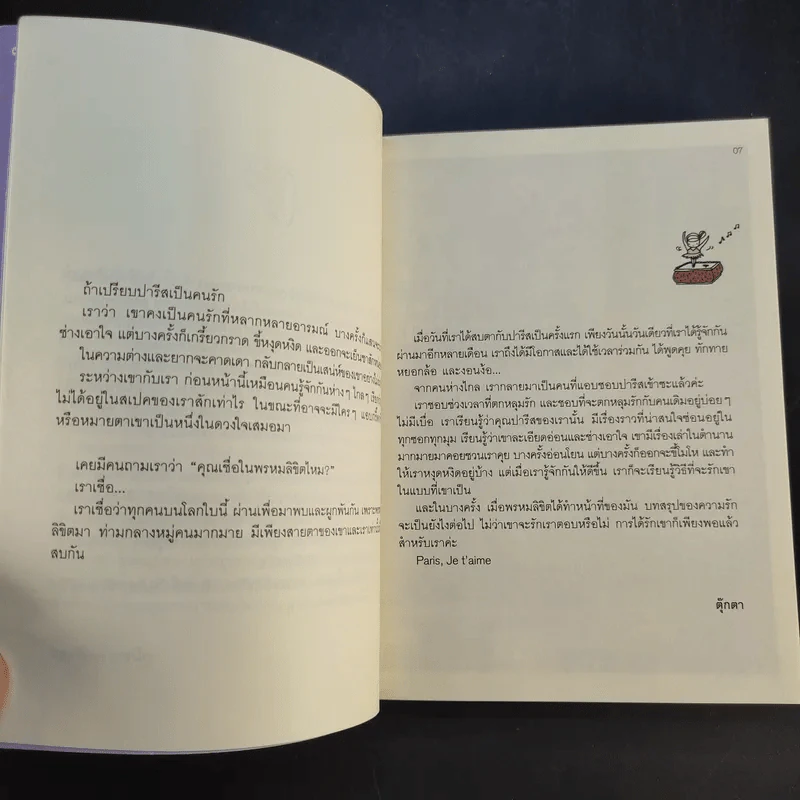 ถ้าเปรียบปารีสเป็นคนรัก
เราว่า เขาคงเป็นคนรักที่หลากหลายอารมณ์ บางครั้งก็แสน
ช่างเอาใจ แต่บางครั้งก็เกรี้ยวกราด ขี้หงุดหงิด และออกจะเย็นชาสักหน่อย
ในความต่างและยากจะคาดเดา กลับกลายเป็นเสน่ห์ของเขาอย่าง
ระหว่างเขากับเรา ก่อนหน้านี้เหมือนคนรู้จักกันห่างๆ ไกลๆ
ไม่ได้อยู่ในสเปคของเราสักเท่าไร ในขณะที่อาจจะมีใครๆ แอบ
หรือหมายตาเขาเป็นหนึ่งในดวงใจเสมอมา
เคยมีคนถามเราว่า “คุณเชื่อในพรหมลิขิตไหม?”
เราเชื่อ...
เราเชื่อว่าทุกคนบนโลกใบนี้ ผ่านเพื่อมาพบและผูกพันกัน เพราะพรหม
ลิขิตมา ท่ามกลางหมู่คนมากมาย มีเพียงสายตาของเขาและเราเท่านั้น
สบกัน
07
เมื่อวันที่เราได้สบตากับปารีสเป็นครั้งแรก เพียงวันนั้นวันเดียวที่เราได้รู้จักกัน
ผ่านมาอีกหลายเดือน เราถึงได้มีโอกาสและได้ใช้เวลาร่วมกัน ได้พูดคุย ทักทาย
หยอกล้อ และงอนง้อ...
จากคนห่างไกล เรากลายมาเป็นคนที่แอบชอบปารีสเข้าซะแล้วค่ะ
เราชอบช่วงเวลาที่ตกหลุมรัก และชอบที่จะตกหลุมรักกับคนเดิมอยู่บ่อยๆ
ไม่มีเบื่อ เราเรียนรู้ว่าคุณปารีสของเรานั้น มีเรื่องราวที่น่าสนใจซ่อนอยู่ใน
ทุกซอกทุกมุม เรียนรู้ว่าเขาละเอียดอ่อนและช่างเอาใจ เขามีเรื่องเล่าในตำนาน
มากมายมาคอยชวนเราคุย บางครั้งอ่อนโยน แต่บางครั้งก็ออกจะขี้โมโห และทำ
ให้เราหงุดหงิดอยู่บ้าง แต่เมื่อเรารู้จักกันให้ดีขึ้น เราก็จะเรียนรู้วิธีที่จะรักเขา
ในแบบที่เขาเป็น
และในบางครั้ง เมื่อพรหมลิขิตได้ทำหน้าที่ของมัน บทสรุปของความรัก
จะเป็นยังไงต่อไป ไม่ว่าเขาจะรักเราตอบหรือไม่ การได้รักเขาก็เพียงพอแล้ว
สำหรับเราค่ะ
Paris, Je t'aime
ตุ๊กตา